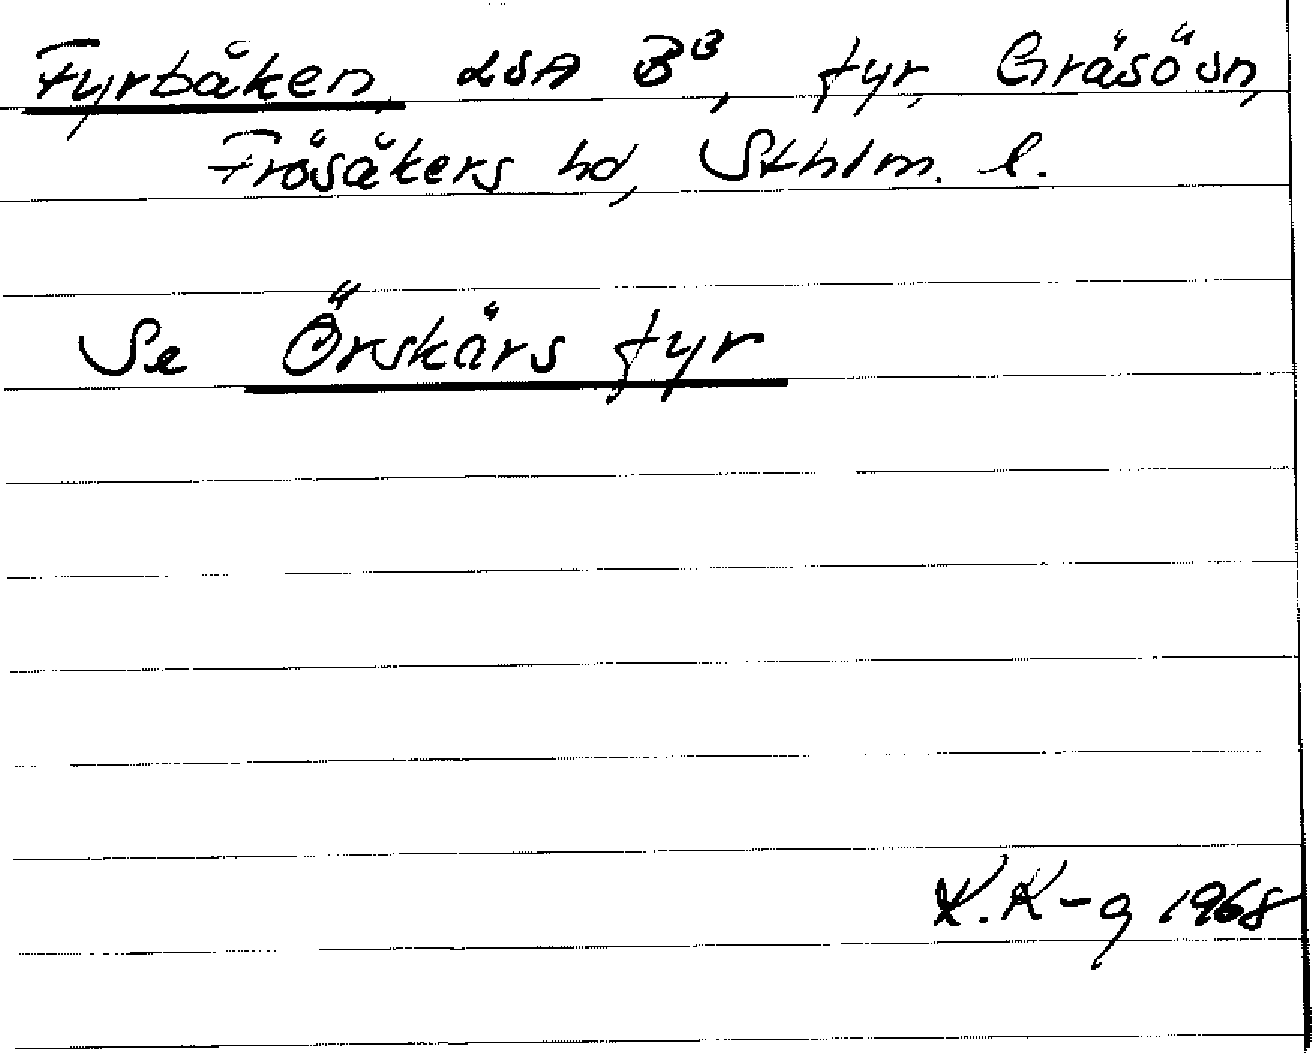 Fyrbåken, LSA B³, fyr, Gräsö sn,
Frösåkers hd, Sthlm. l.
Se Örskärs fyr
K. K-g 1968